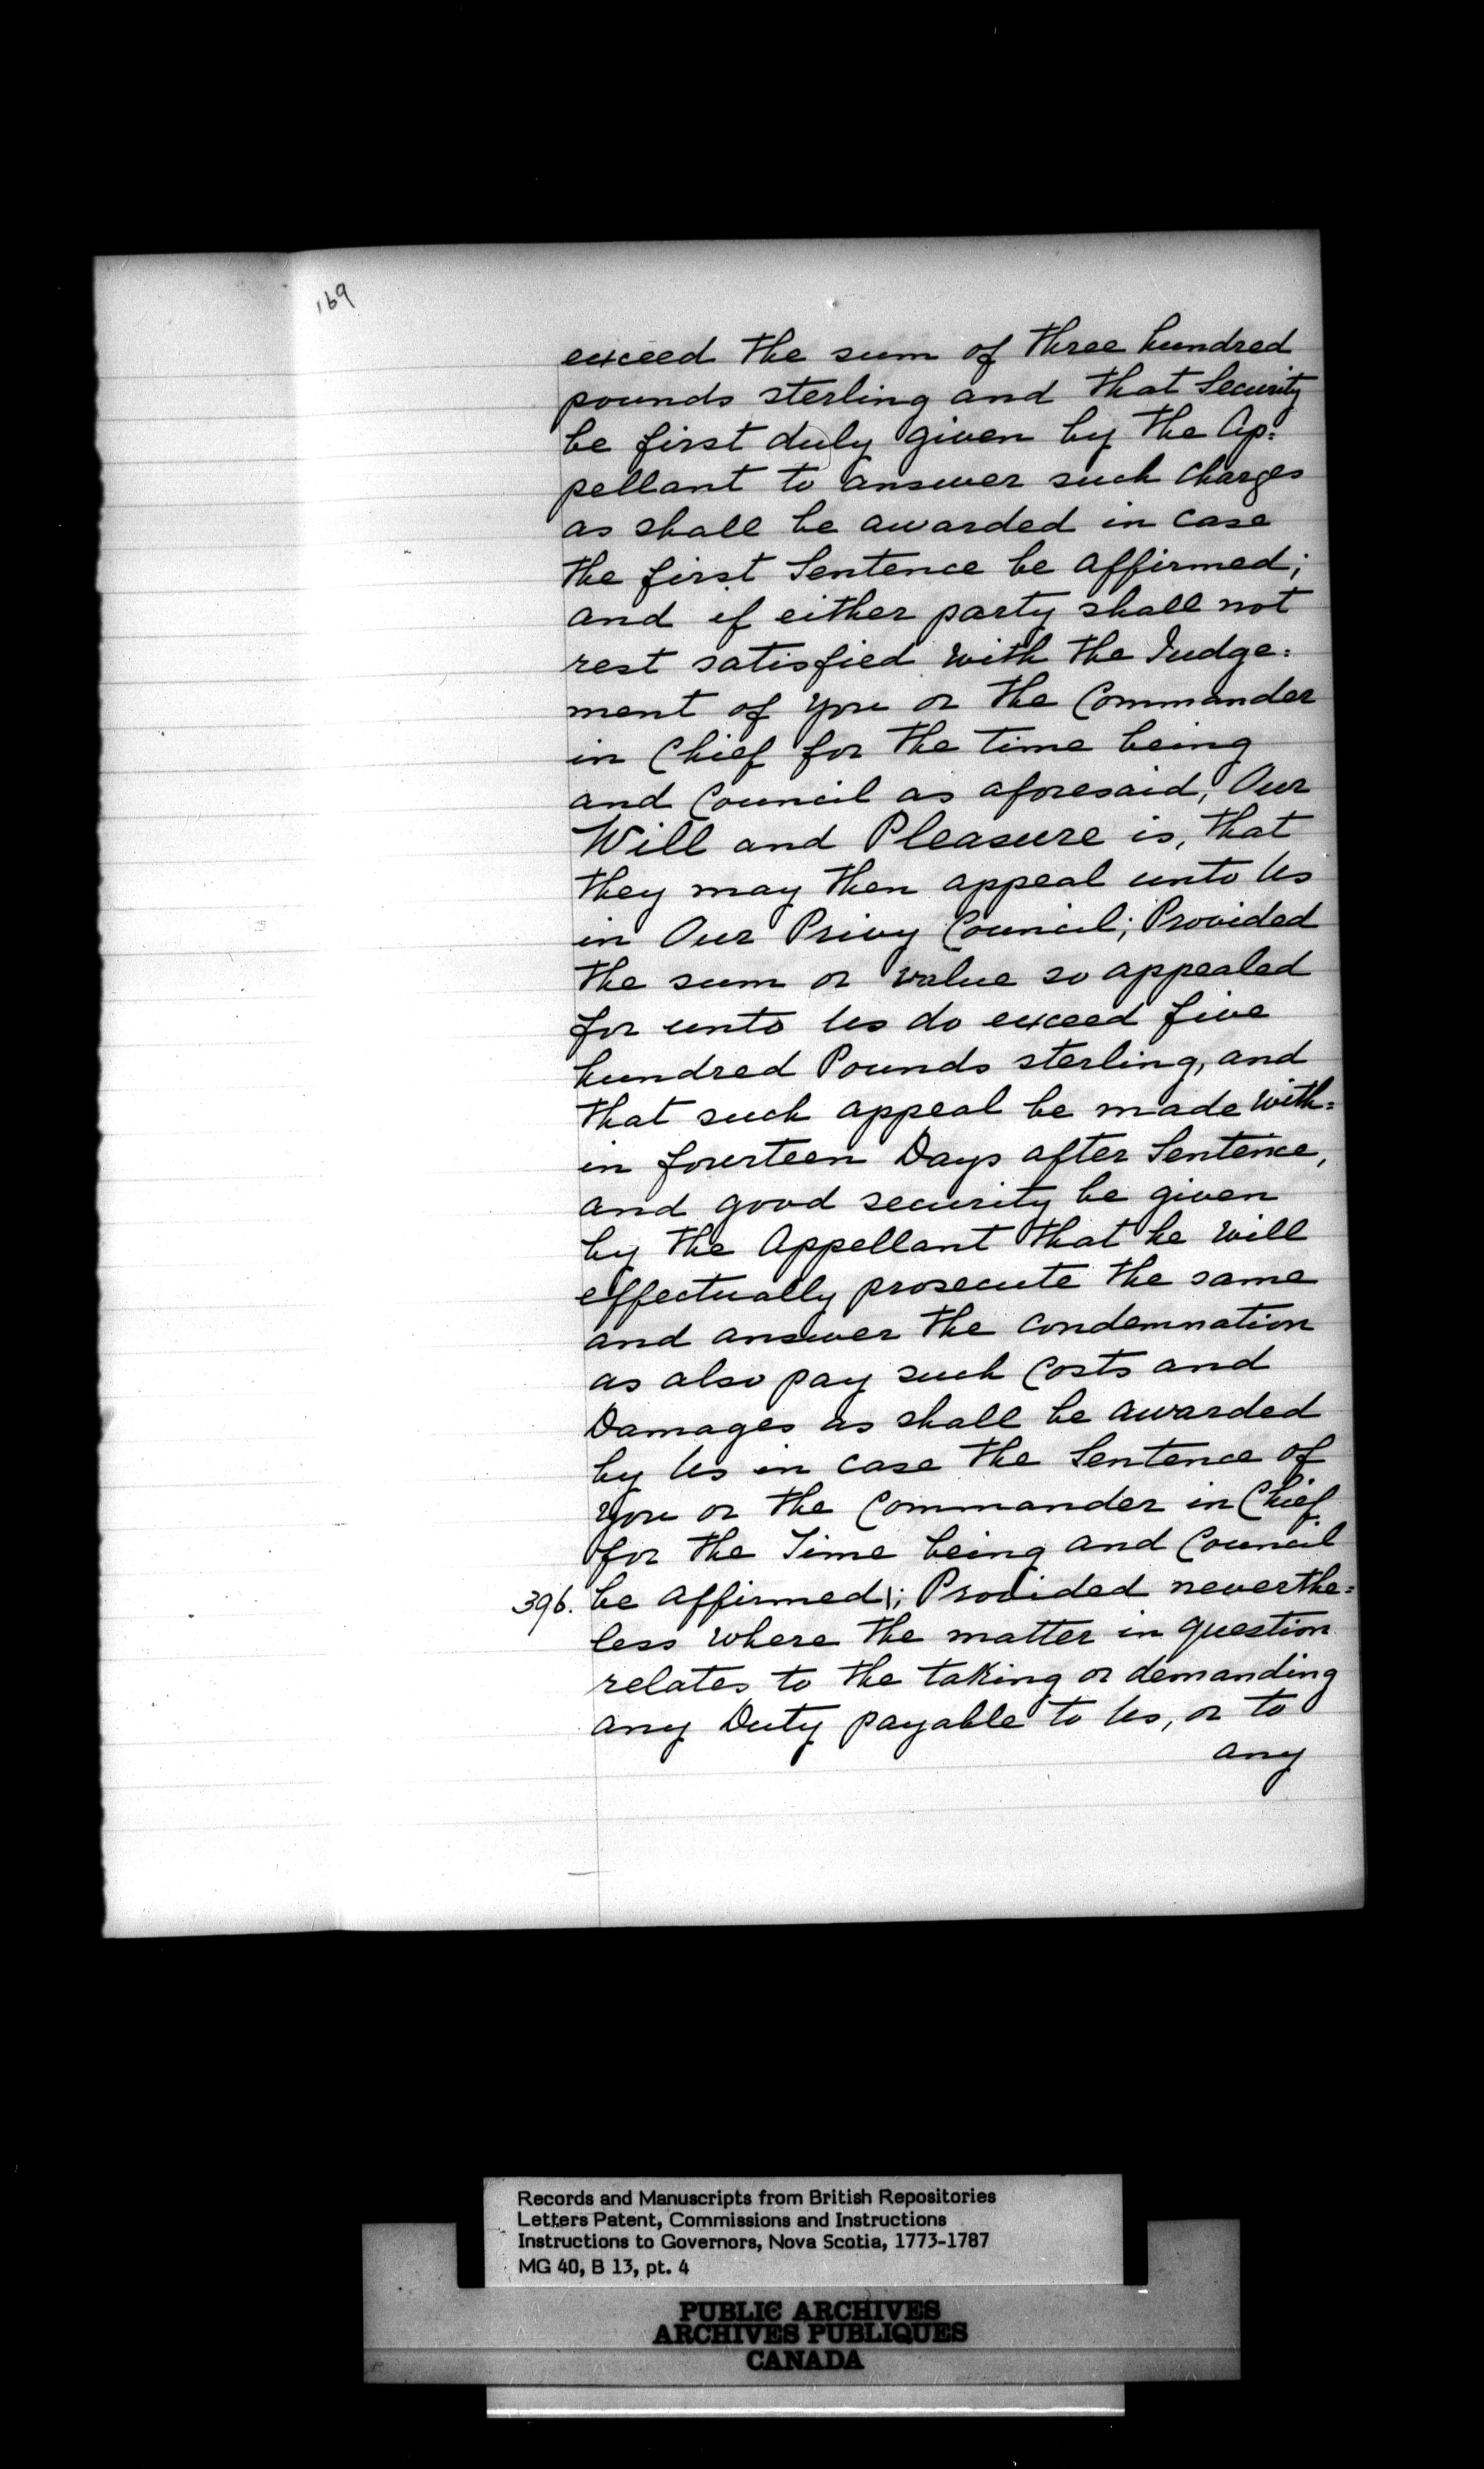 169
exceed the sum of three hundred
pounds sterling and that Security
be first duly given by the Ap=
pellant to answer such Charges
as shall be awarded in Case
the first Sentence be affirmed;
and if either party shall not
rest satisfied with the Judge=
ment of you or the Commander
in Chief for the time being
and Council as aforesaid, Our
Will and Pleasure is, that
they may then appeal unto Us
in Our Privy Council; Provided
the sum or value so appealed
for unto Us do exceed five
hundred Pounds sterling, and
that such appeal be made with=
in fourteen Days after Sentence,
and good security be given
by the Appellant that he will
effectually prosecute the same
and answer the Condemnation
as also pay such Costs and
Damages as shall be awarded
by Us in case the Sentence of
you or the Commander in Chief
for the Time being and Council
396. be affirmed\; Provided neverthe=
less where the matter in question
relates to the taking or demanding
any Duty payable to Us, or to
any
Records and Manuscripts from British Repositories
Letters Patent, Commissions and Instructions
Instructions to Governors, Nova Scotia, 1773-1787
MG 40, B 13, pt. 4
PUBLIC ARCHIVES
ARCHIVES PUBLIQUES
CANADA